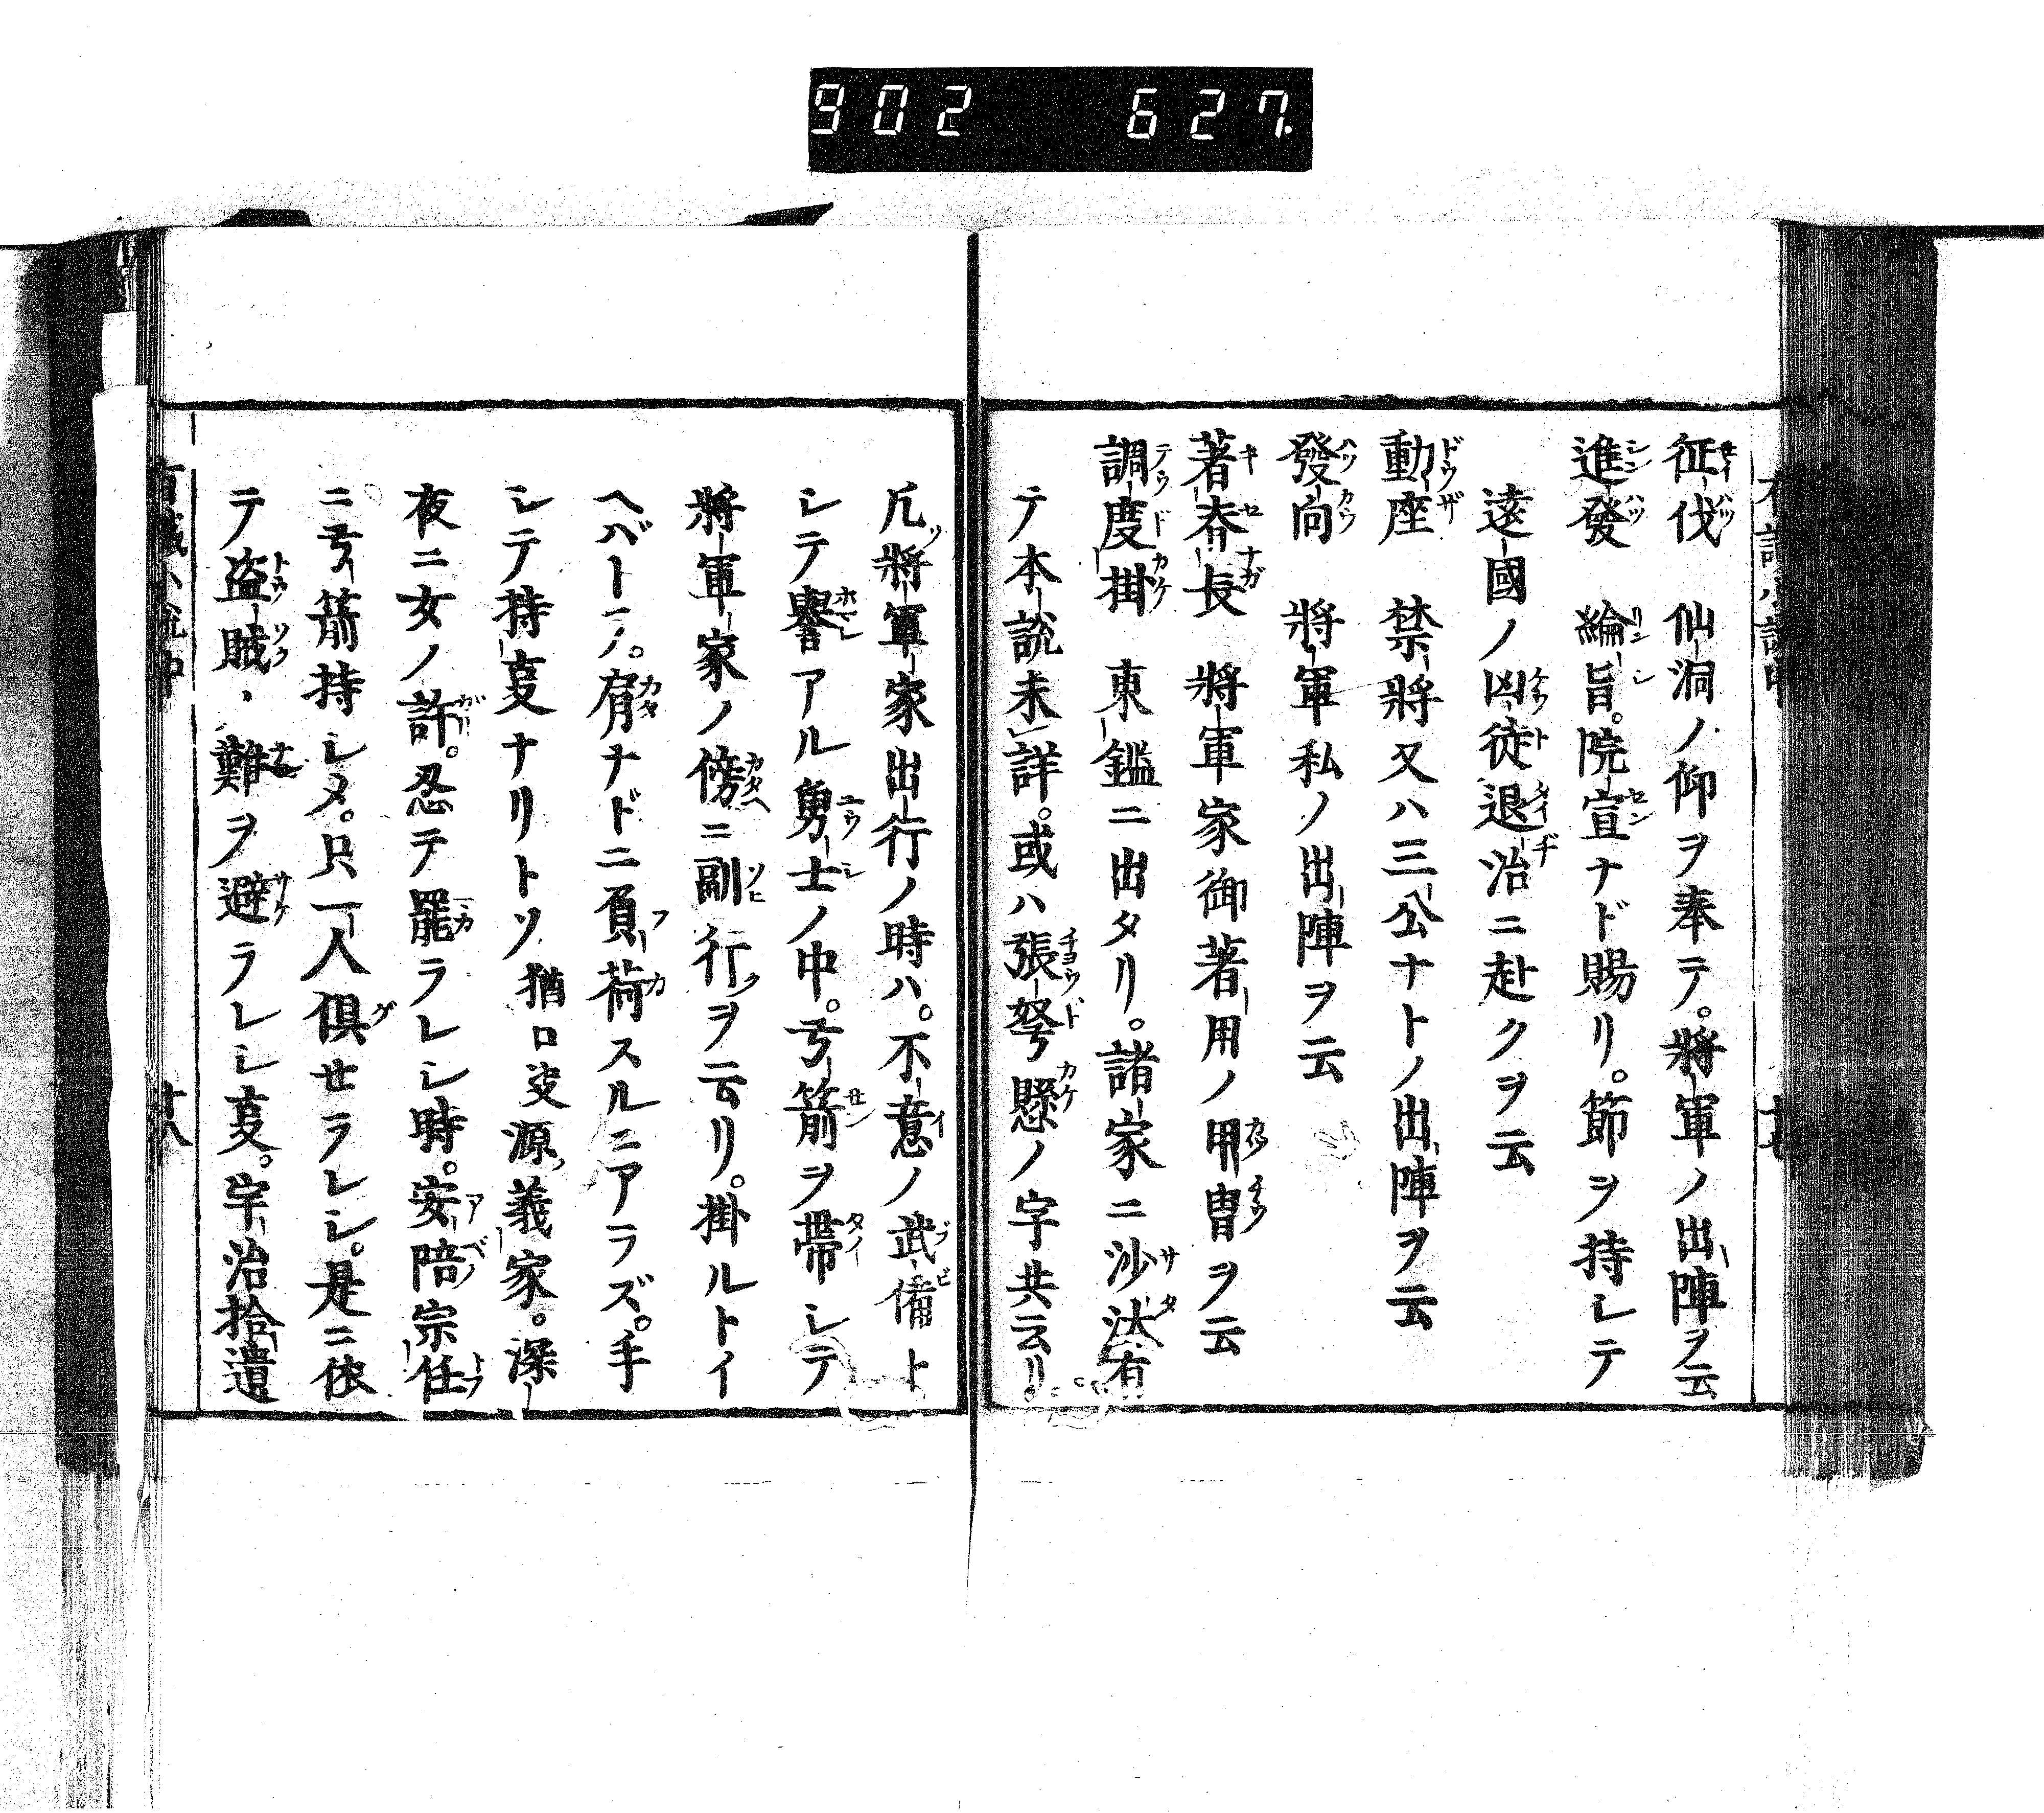 902 627.
征伐 仙洞ノ仰ヲ奉テ。將軍ノ出陣ヲ云
進發 綸旨。院宣ナド賜リ。節ヲ持シテ
遠國ノ凶徒退治ニ赴クヲ云
動座 禁將又ハ三公ナトノ出陣ヲ云
發向 將軍私ノ出陣ヲ云
著脊長 將軍家御著用ノ甲冑ヲ云
調度掛 東鑑ニ出タリ。諸家ニ沙汰有
テ本說未詳。或ハ張弩懸ノ字共云リ
凡將軍家出行ノ時ハ。不意ノ武備ト
シテ譽アル勇士ノ中。弓箭ヲ帶シテ
將軍家ノ傍ニ副行ヲ云リ。掛ルトイ
ヘバトテ。肩ナドニ負荷スルニアラズ。手
シテ持叓ナリトソ 猶口㕝源義家。深
夜ニ女ノ許。忍テ罷ラレシ時。安陪宗任
ニ弓箭持シメ。只一人俱せラレシ。是ニ依
テ盗賊ノ難ヲ避ラレシ叓。宇治拾遺
十八